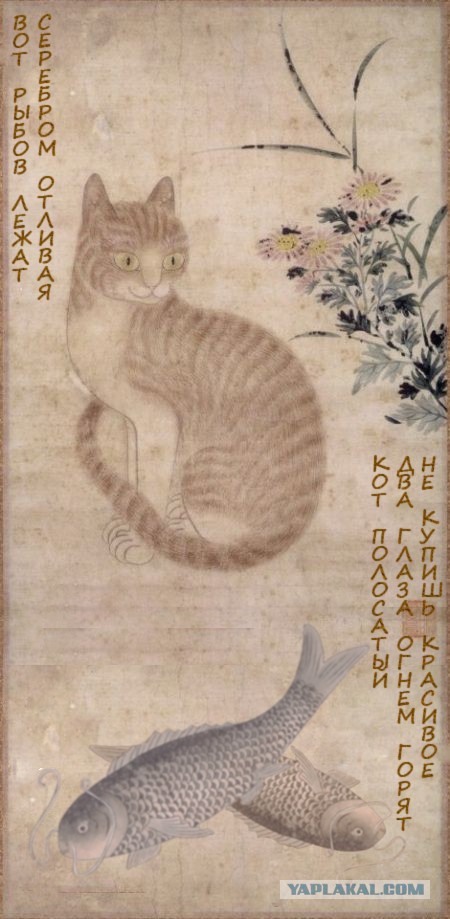 ВОТ РЫБОВ ЛЕЖАТ
СЕРЕБРОМ ОТЛИВАЯ
КОТ ПОЛОСАТЫЙ
ДВА ГЛАЗА ОГНЕМ ГОРЯТ
НЕ КУПИШЬ КРАСИВОЕ
YAPLAKAL.COM